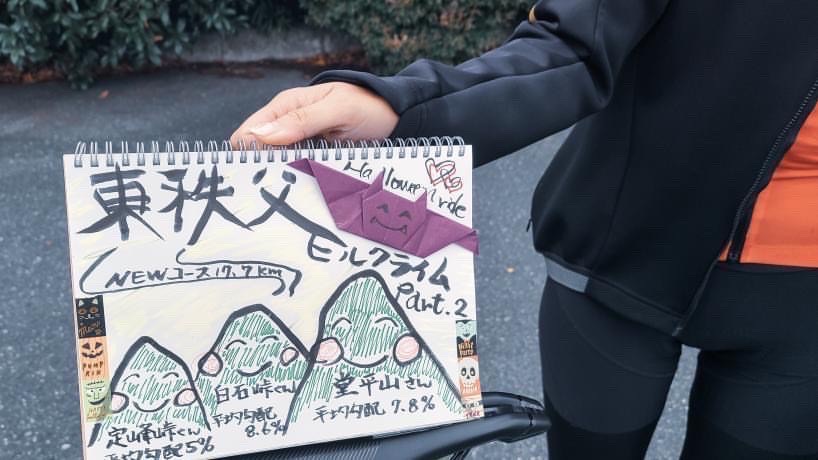 Halloween ride
東秩父
ヒルクライム
Part.2
NEWコース17.7km
定峰峠くん
平均勾配5%
白石峠くん
平均勾配
8.6%
堂平山さん
平均勾配 7.8%
PUMP
KIN